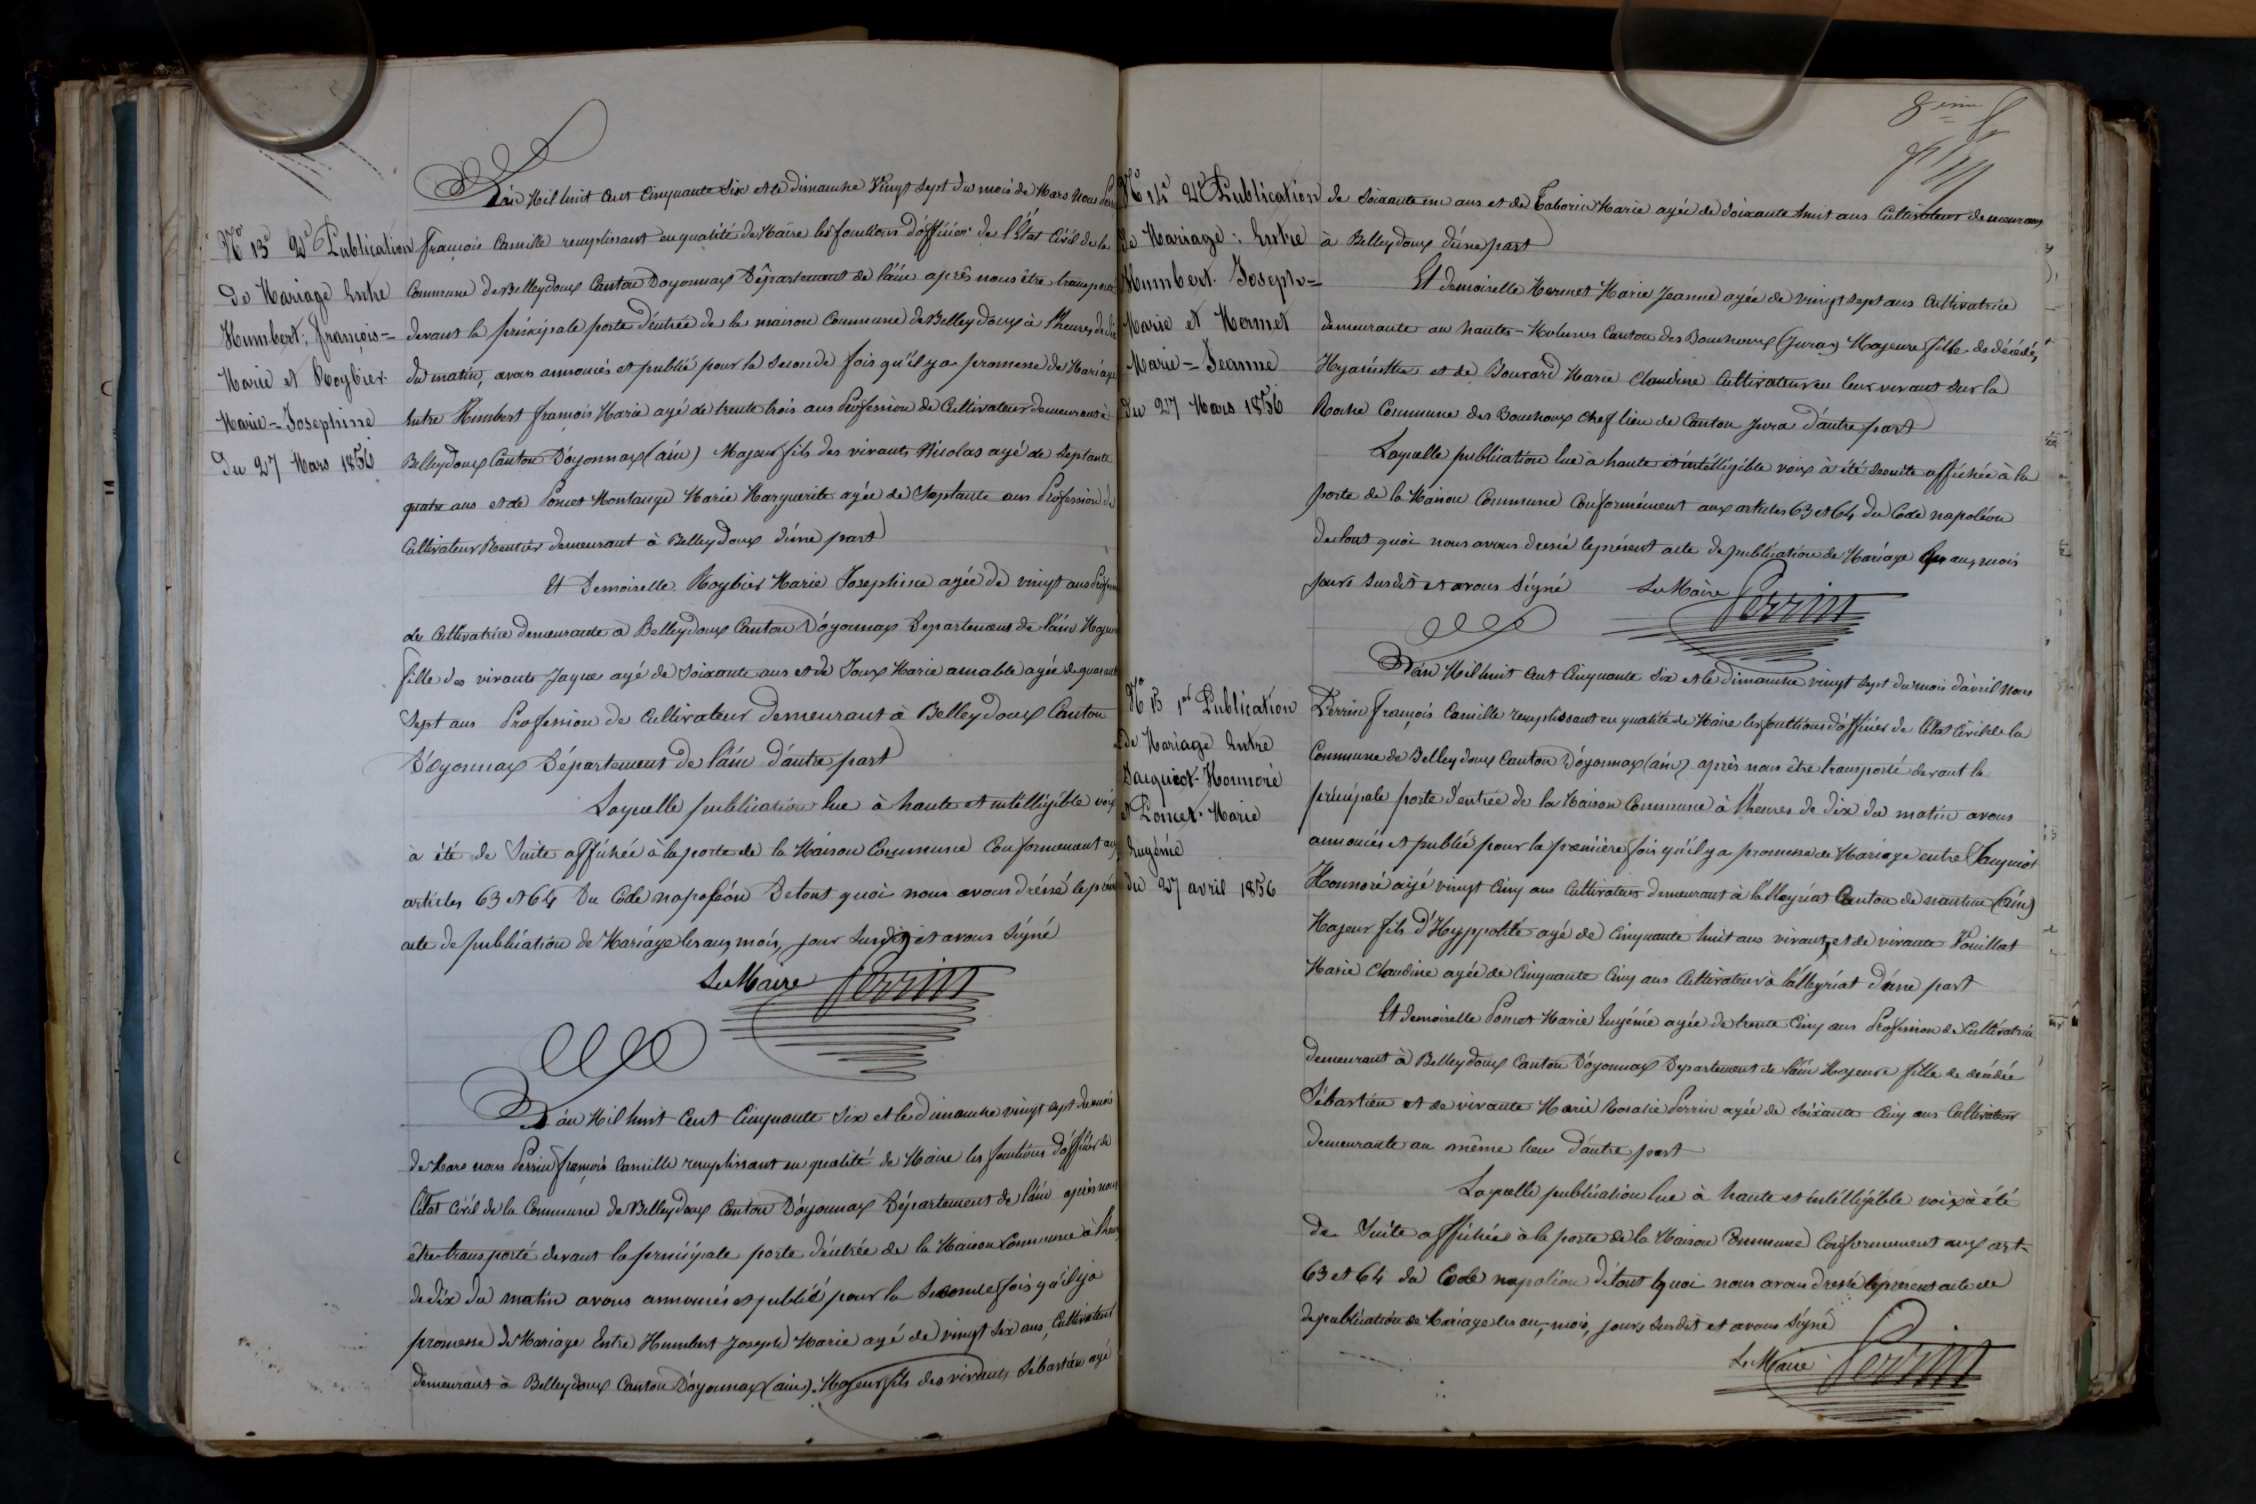 L'án Mil huit Cent Cinquante Six et le dimanche Vingt Sept du mois de Mars nous
N° 13 2e Publication
de Mariage Entre
Humbert. françois =
Marie et Roybier
Marie = Josephine
Du 27 Mars 1856
françois Camille remplissant en qualité de Maire les fonctions d'officier de l'État Civil de la
Commune de Belleydoux Canton Doyonnax Département de l'ain après nous être transporté
devant la principale porte d'entrée de la maison Commune de Belleydoux à l'heures de dix
du matin, avons annoncés et publié pour la seconde fois qu'il y a promesse de Mariage
Entre Humbert françois Marie agé de trente trois ans Profession de Cultivateur demeurant à
Belleydoux Canton D'oyonnax (ain) Majeur fils des vivants Nicolas agé de Septante
quatre ans et de Poncet Montange Marie Marguerite agée de Septante ans Profession de
Cultivateur Rentier demeurant à Belleydoux d'une part
Et Demoiselle Roybier Marie Josephine agée de vingt ans Profession
de Cultivatrice demeurante à Belleydoux Canton D'oyonnax Departement de l'ain Majeure
fille des vivants Jaques agé de Soixante ans et de Joux Marie amable agée de quarante
Sept ans Profession de Cultivateur demeurant à Belleydoux Canton
D'oyonnax Département de l'ain d'autre part
Laquelle publication lue à haute et intélligible voix
à été de Suite affichée à la porte de la Maison Commune Conformement aux
articles 63 et 64 Du Code napoléon De tout quoi nous avons dréssé le présent
acte de publication de Mariage les an, mois, jour Susdits et avons Signé
Le Maire Perrin
L'án Mil huit Cent Cinquante Six et le dimanche vingt sept du mois
de Mars nous Perrin françois Camille remplissant en qualité de Maire les fonctions d'officier de
l'état Civil de la Commune de Belleydoux Canton D'oyonnax Département de l'ain après nous
être transporté devant la principale porte d'entrée de la Maison Commune à l'heures
de dix du matin avons annoncés et publié pour la Seconde fois qu'il y a
promesse de Mariage Entre Humbert Joseph Marie agé de vingt Six ans, Cultivateur
demeurant à Belleydoux Canton D'oyonnax (ain). Majeur fils des vivants Sébastien agé
8ème
N° 14 2e Publication
de Mariage: Entre
Humbert. Joseph =
Marie et Mermet
Marie = Jeanne
Du 27 Mars 1856
de Soixante un ans et de Taborin Marie agée de soixante huit ans Cultivateur demeurans
à Belleydoux d'une part
Et demoiselle Mermet Marie Jeanne agée de vingt sept ans Cultivatrice
demeurante au hautes-Molunes Canton des Bouchoux (Jura) Majeure fille de décédés,
Hyacinthe et de Bouvard Marie Claudine Cultivateur en leur vivant sur la
Roche Commune des Bouchoux Chef lieu de Canton Jura d'autre part
Laquelle publication lue à haute et intélligible voix à été desuite affichée à la
porte de la Maison Commune Conformément aux articles 63 et 64 du Code napoléon
de tout quoi nous avons dressé le présent acte de publication de Mariage les an, mois
jours susdits et avons Signé Le Maire Perrin
N° 15 1er Publication
de Mariage Entre
Jacquiot-Honnoré
et Poncet. Marie
Eugénie
du 27 avril 1856
L'án Mil huit Cent Cinquante Six et le dimanche vingt sept du mois d'avril nous
Perrin françois Camille remplissant en qualité de Maire les fonctions d'officier de l'état Civil de la
Commune de Belleydoux Canton D'oyonnax (ain) après nous être transporté devant la
principale porte d'entrée de la Maison Commune à l'heures de dix du matin avons
annoncés et publié pour la première fois qu'il y a promesse de Mariage entre Jacquiot
Honnoré agé vingt Cinq ans Cultivateur demeurant à l'alleyriat Canton de nantua (ain)
Majeur fils d'Hyppolite agé de Cinquante huit ans vivant, et de vivante Pouillat
Marie Claudine agée de Cinquante Cinq ans Cultivateur à l'alleyriat d'une part
Et demoiselle Poncet Marie Eugénie agée de trente Cinq ans Profession de Cultivatrice
demeurant à Belleydoux Canton D'oyonnax Departement de l'ain Majeure fille de décédé
Sébastien et de vivante Marie Rosalie Perrin agée de Soixante Cinq ans Cultivateur
demeurante au même lieu d'autre part
Laquelle publication lue à haute et intélligible voix à été
de Suite affichée à la porte de la Maison Commune Conformement aux art.
63 et 64 du Code napoléon de tout quoi nous avons dressé le présent acte de
de publication de Mariage les an, mois, jours Susdits et avons Signé
Le Maire Perrin